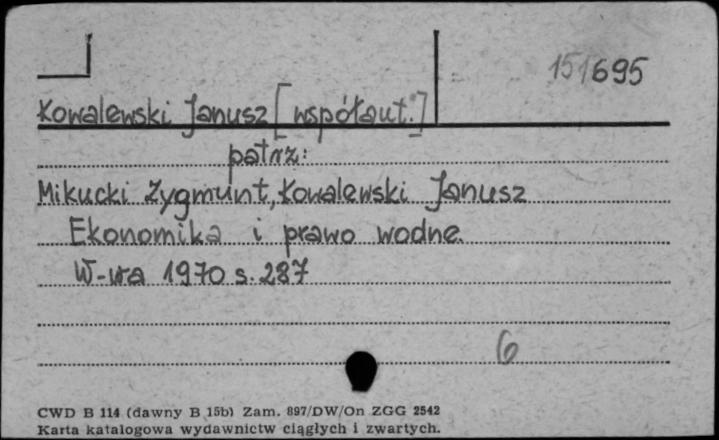 151695
Kowalewski Janusz [współaut.]
patrz:
Mikucki Zygmunt, Kowalewski Janusz
Ekonomika i prawo wodne.
W-wa 1970 s. 287
6
CWD B 114 (dawny B 15b) Zam. 897/DW/On ZGG 2542
Karta katalogowa wydawnictw ciągłych i zwartych.